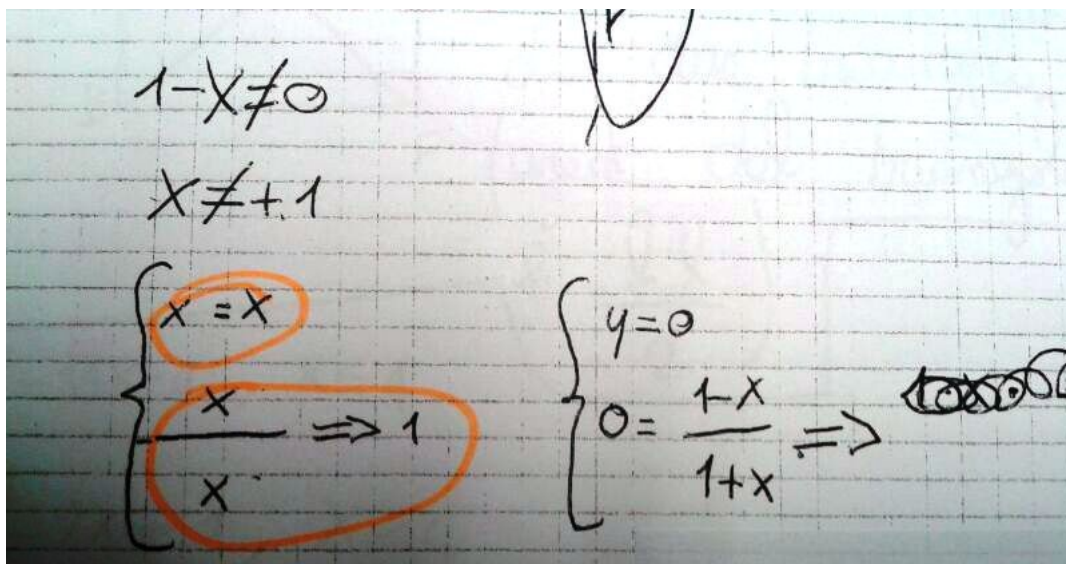 1-X≠0
X≠+1
x = x
x/x ⇒ 1
y=0
0= 1-x/1+x ⇒